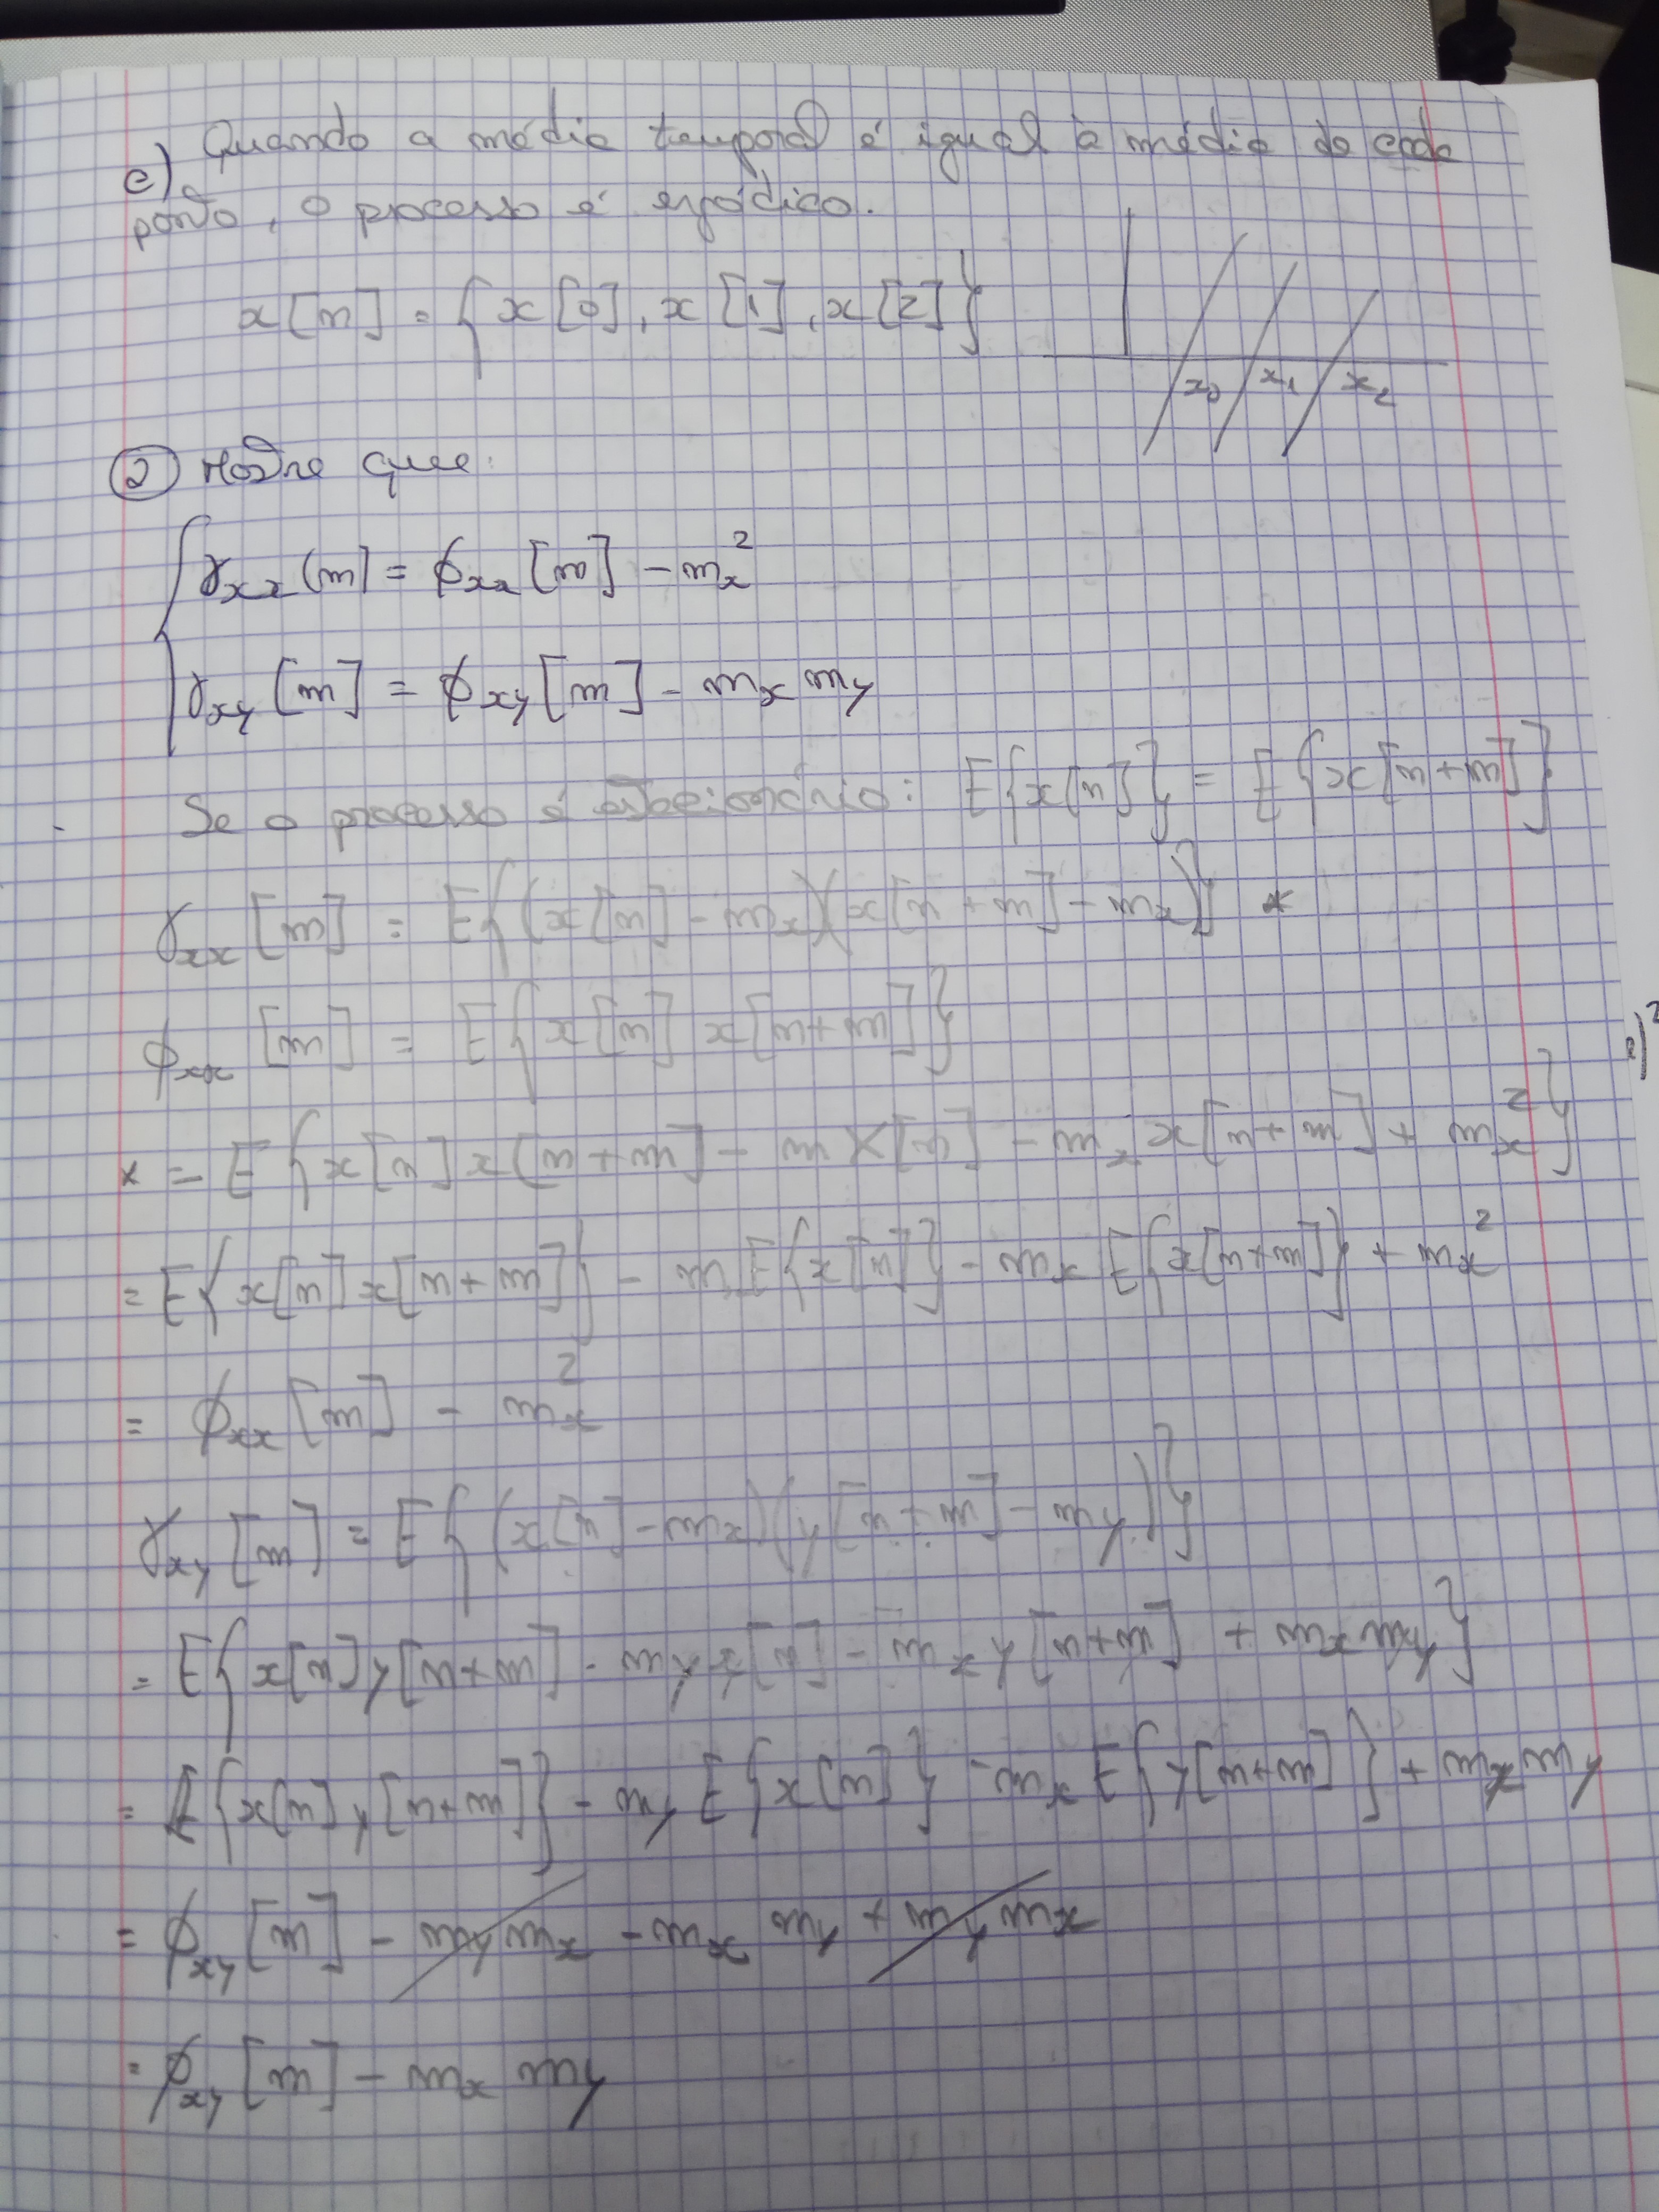 e) Quando a média temporal é igual à média de cada
ponto, o processo é ergódico.
x[n] = { x[0], x[1], x[2] }
x₀ x₁ x₂
② Mostre que:
γxx[m] = ϕxx[m] - mx²
γxy[m] = ϕxy[m] - mx my
Se o processo é estacionário: E{x[n]} = E{x[n+m]}
γxx[m] = E{(x[n] - mx)(x[n+m] - mx)} *
ϕxx[m] = E{x[n] x[n+m]}
* = E{x[n] x[n+m] - m x[n] - mx x[n+m] + mx²}
= E{x[n] x[n+m]} - mx E{x[n]} - mx E{x[n+m]} + mx²
= ϕxx[m] - mx²
γxy[m] = E{(x[n] - mx)(y[n+m] - my)}
= E{x[n] y[n+m] - my x[n] - mx y[n+m] + mx my}
= E{x[n] y[n+m]} - my E{x[n]} - mx E{y[n+m]} + mx my
= ϕxy[m] - my mx - mx my + my mx
= ϕxy[m] - mx my